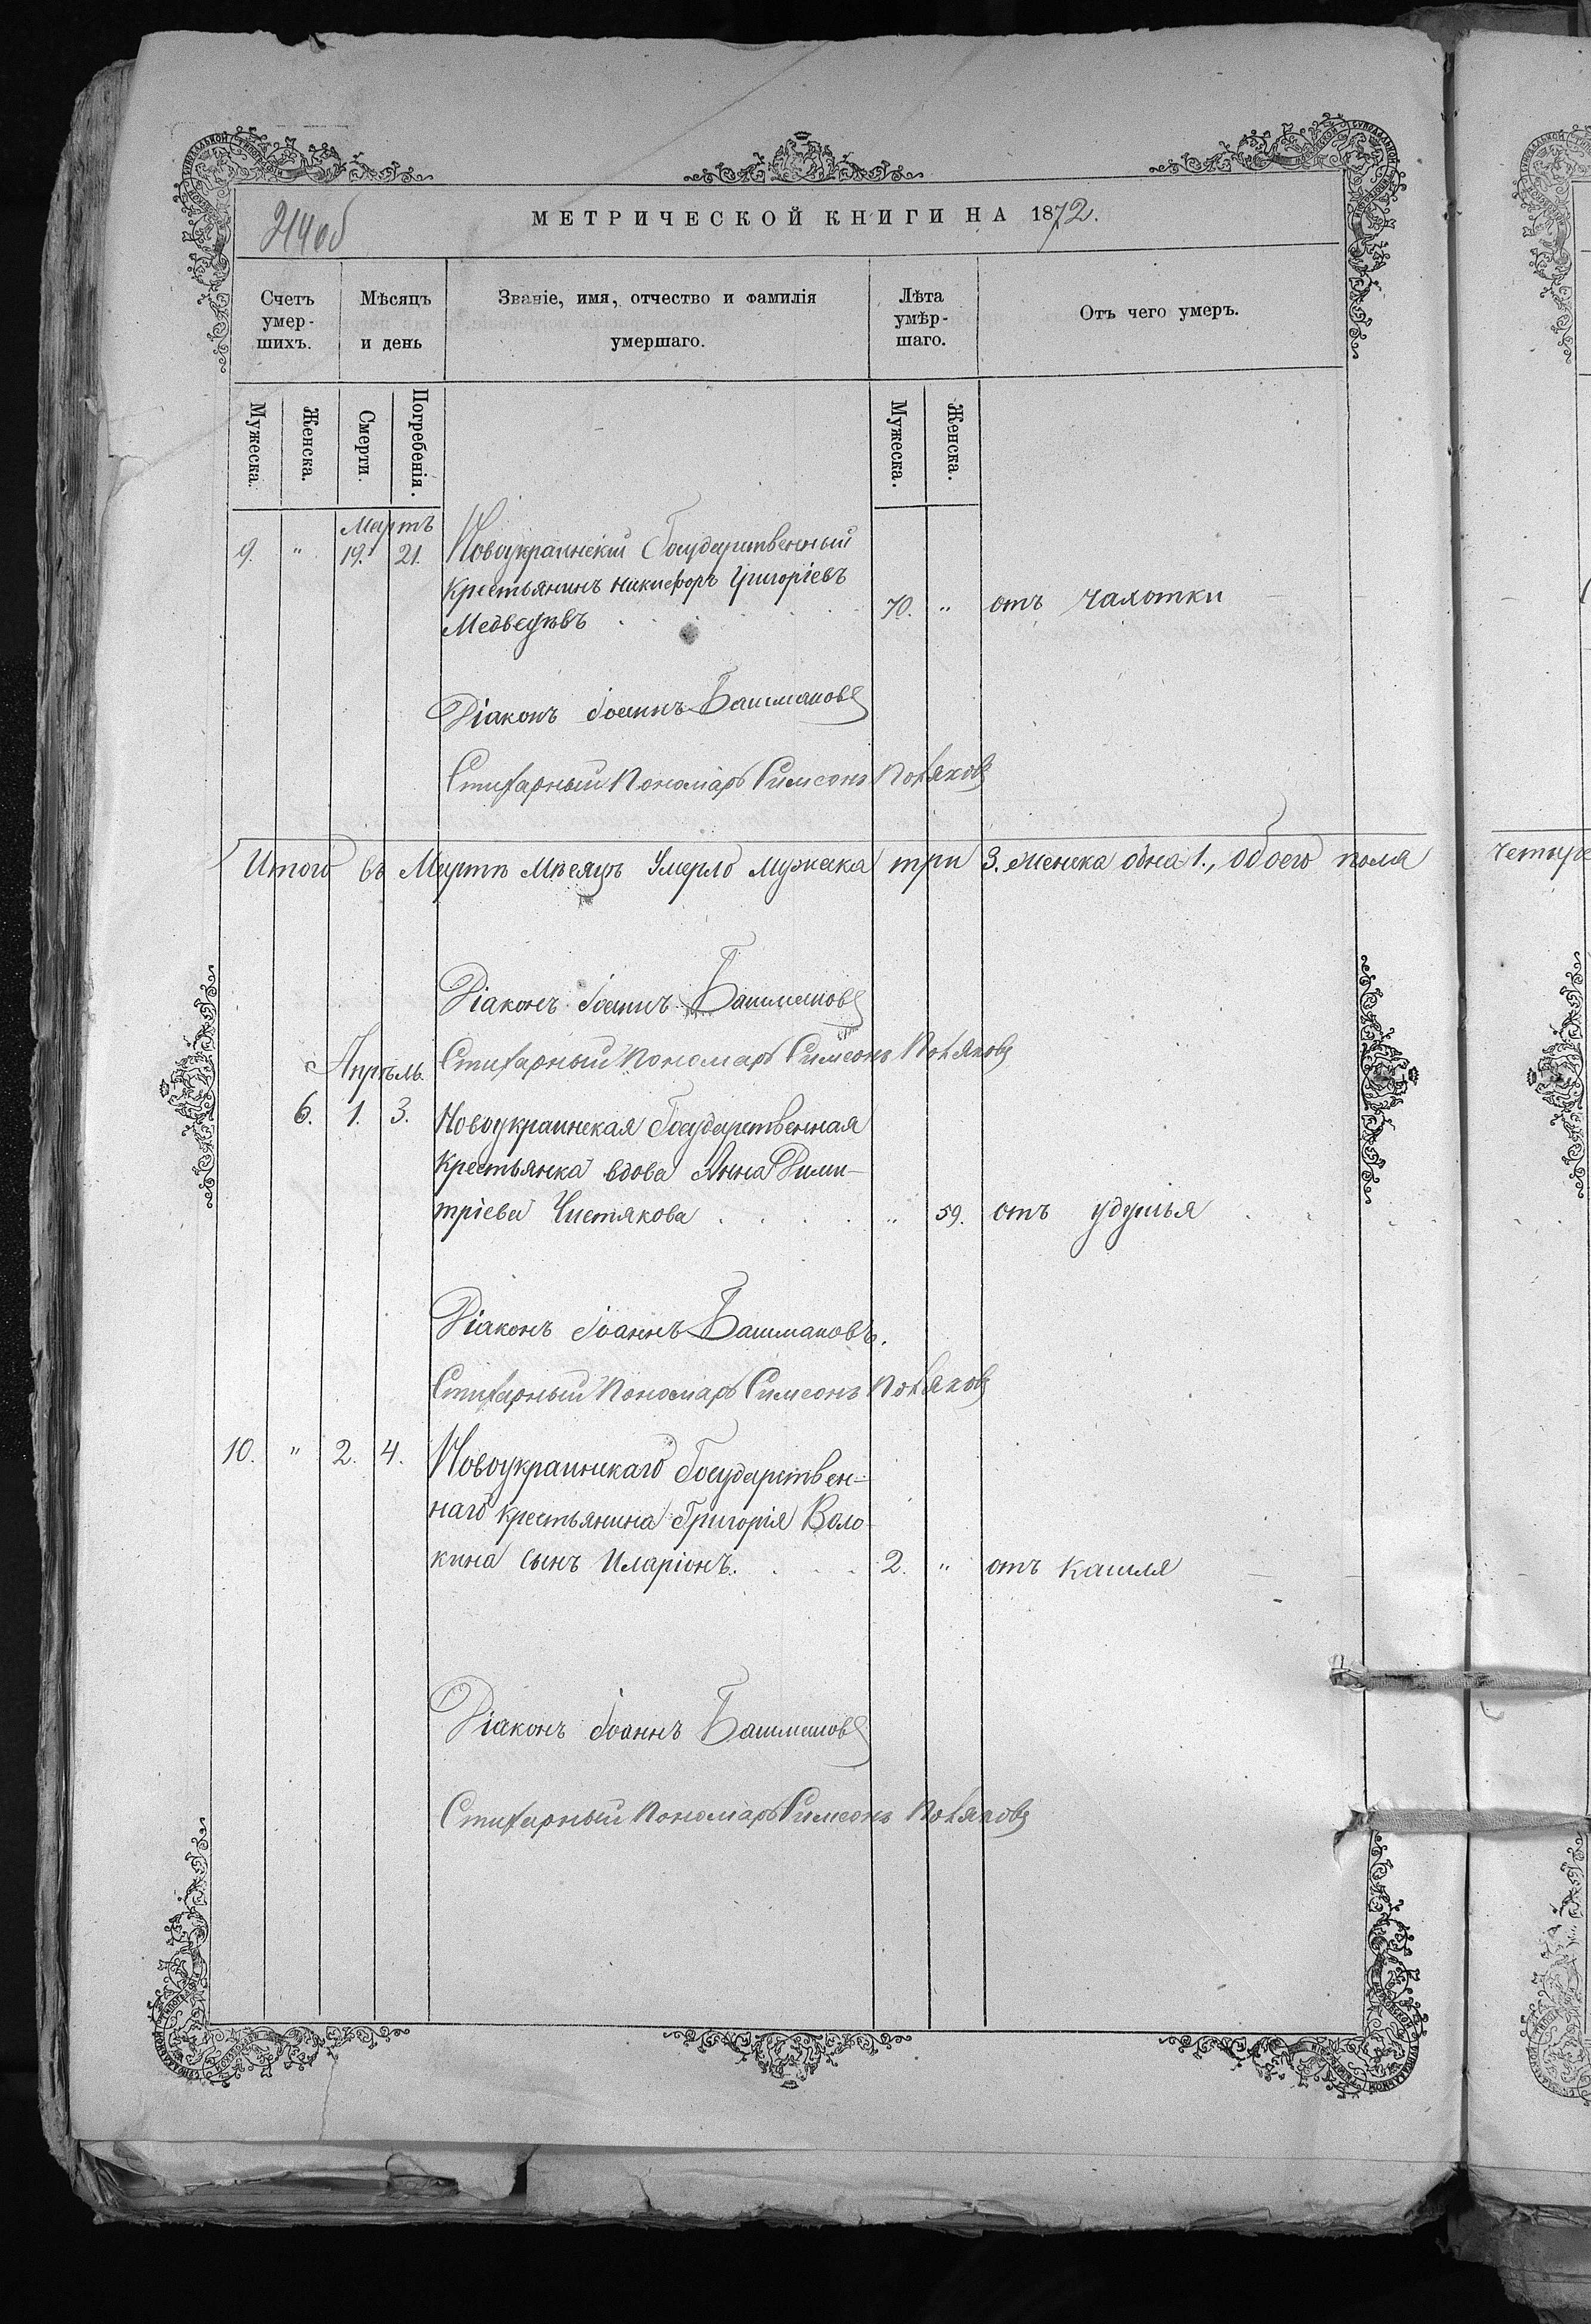 214об
МЕТРИЧЕСКОЙ КНИГИ НА 1872.
Счетъ умер-шихъ.
Мѣсяцъ и день
Званіе, имя, отчество и фамилія умершаго.
Лѣта умѣр-шаго.
Отъ чего умеръ.
Мужеска.
Женска.
Смерти.
Погребенія.
Мужеска.
Женска.
Мартъ
9. " 19. 21. Новоукраинскій Государственный
Крестьянинъ Никифоръ Григоріевъ
Медведѣвъ 70. " отъ чахотки
Діаконъ Іоаннъ Башмаковъ
Стихарный Пономарь Симеонъ Поляковъ
Итого въ Мартѣ Мѣсяцѣ Умерло мужеска три 3. женска одна 1., обоего пола
четыре
Діаконъ Іоаннъ Башмаковъ
Стихарный Пономарь Симеонъ Поляковъ
Апрѣль.
6. 1. 3. Новоукраинская Государственная
Крестьянка вдова Анна Дими-
тріева Чистякова . . . . " 59. отъ удушья
Діаконъ Іоаннъ Башмаковъ.
Стихарный Пономарь Симеонъ Поляковъ
10. " 2. 4. Новоукраинскаго Государствен-
наго крестьянина Григорія Воло-
кина сынъ Иларіонъ. . . . 2. " отъ кашля
Діаконъ Іоаннъ Башмаковъ
Стихарный Пономарь Симеонъ Поляковъ